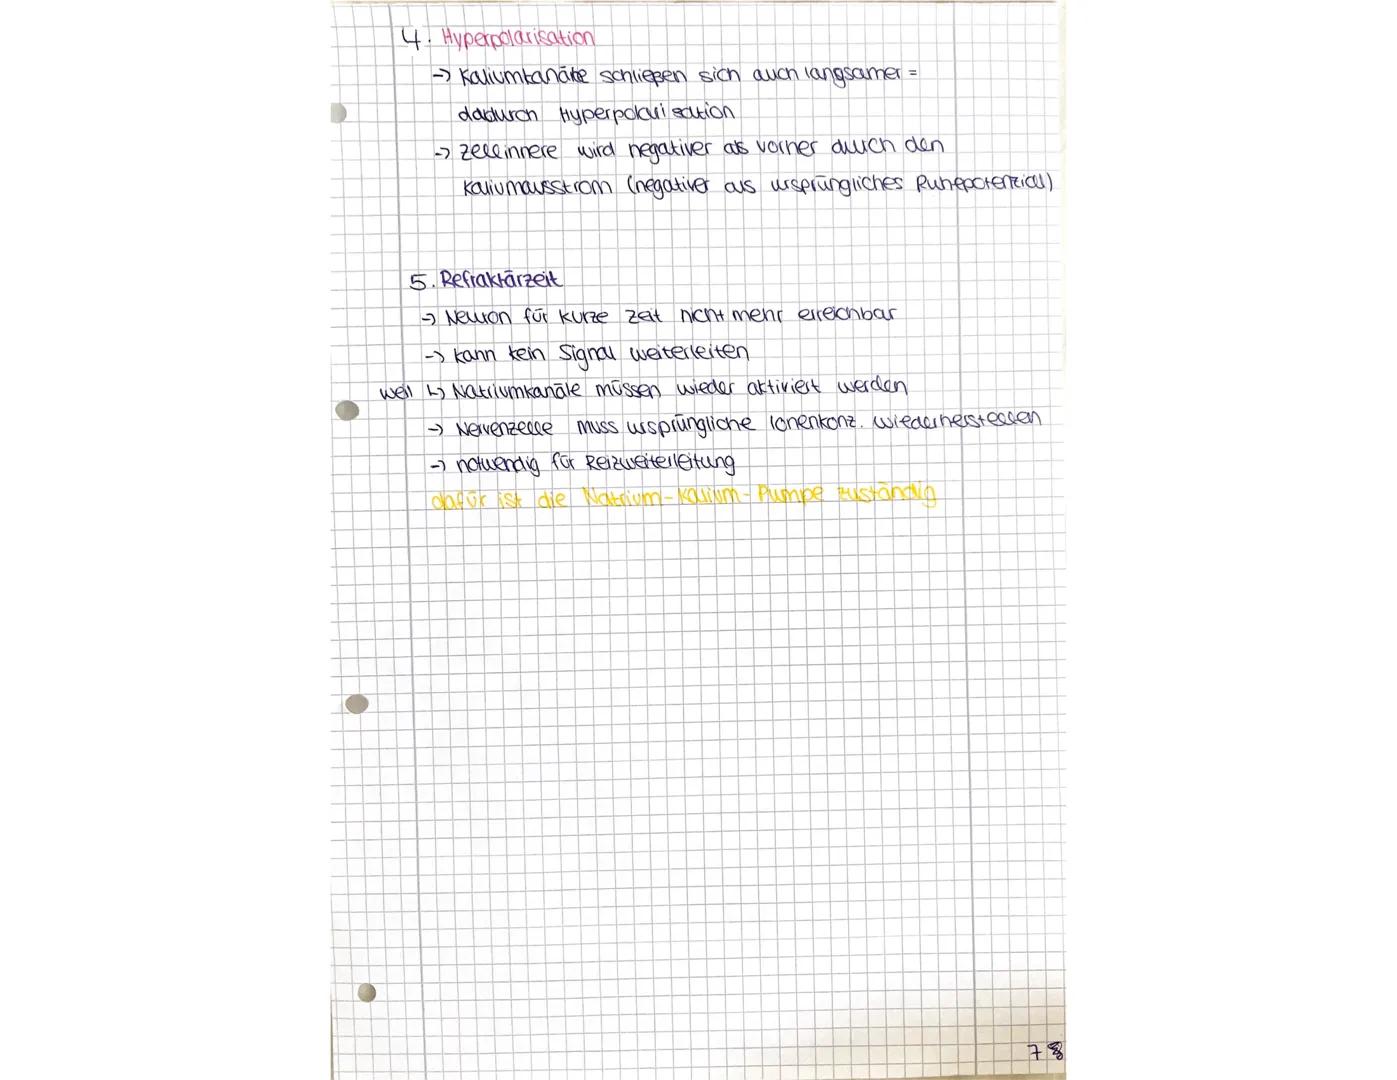 4. Hyperpolarisation
-> Kaliumkanäle schließen sich auch langsamer =
dadurch Hyperpolarisation
-> Zellinnere wird negativer als vorher durch den
Kaliumausstrom (negativer als ursprüngliches Ruhepotenzial)
5. Refraktärzeit
-> Neuron für kurze Zeit nicht mehr erreichbar
-> kann kein Signal weiterleiten
weil ↳ Natriumkanäle müssen wieder aktiviert werden
-> Nervenzelle muss ursprüngliche Ionenkonz. wiederherstellen
-> notwendig für Reizweiterleitung
dafür ist die Natrium-Kalium-Pumpe zuständig
7